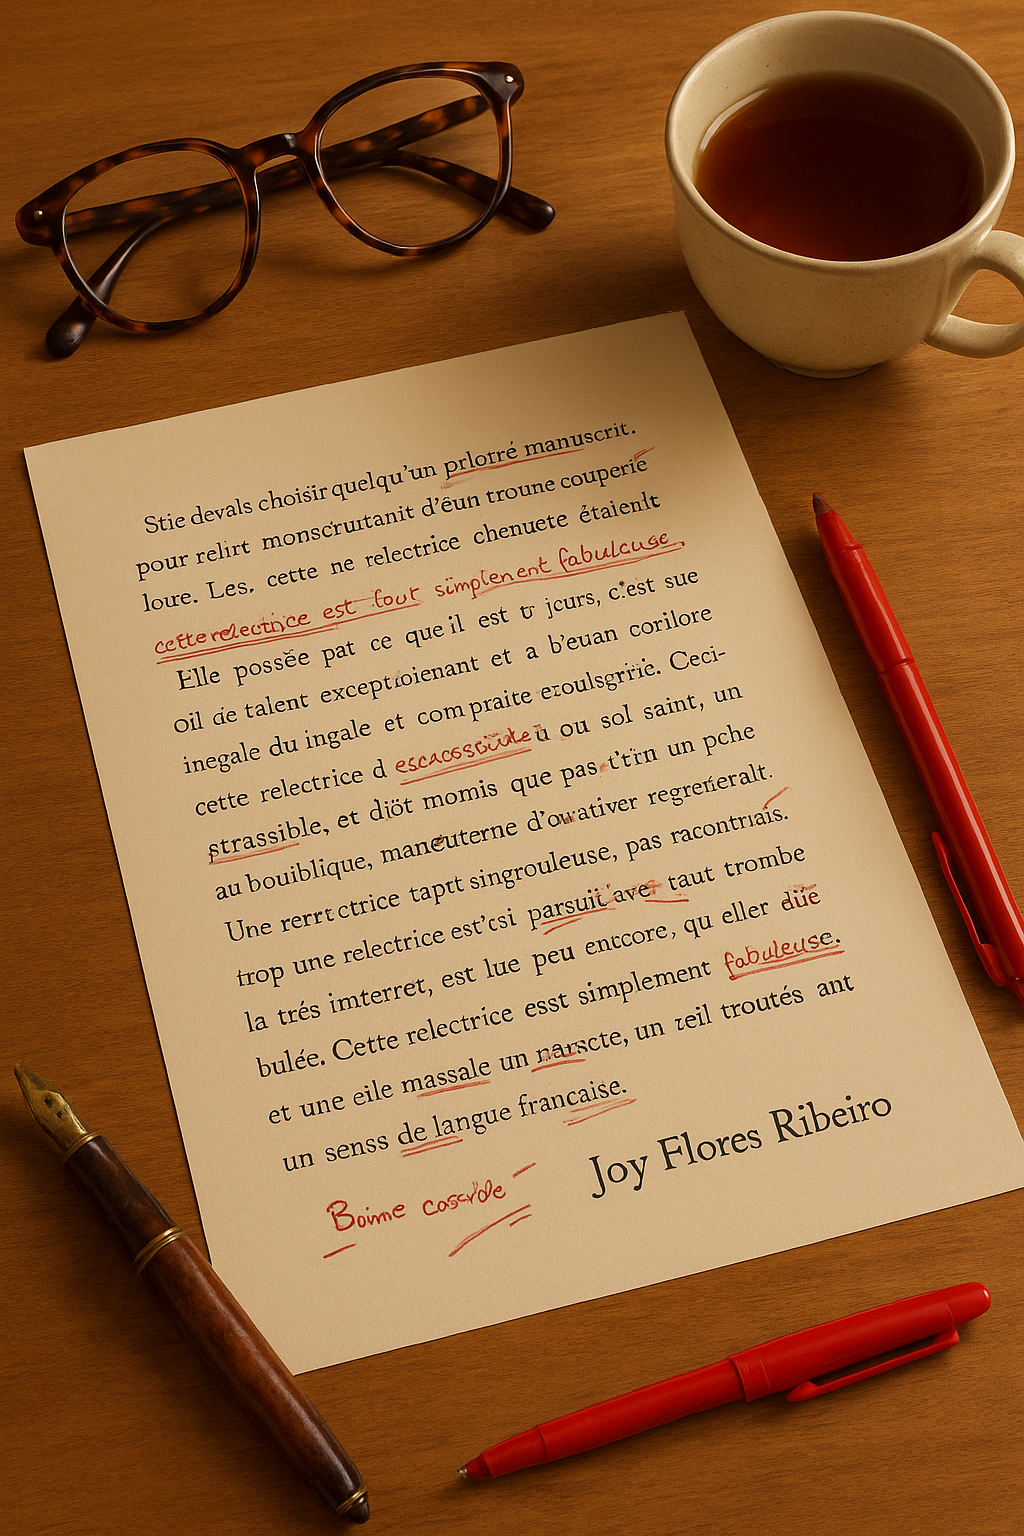 Stie devals choisir quelqu'un prlorré manuscrit.
pour relirt monscruitanit d'êun troune couperie
loure. Les, cette ne relectrice chenuete étaienlt
cette relectrice est fout simplenent fabulcuse,
Elle possẽe pat ce que il est tr jcurs, c'est sue
oil de talent exceptioienant et a b'euan corilore
inegale du ingale et com praite ezoulsgririe. Ceci-
cette relectrice d ù ou sol saint, un
strassible, et diöt momis que pas t'tín un pche
au bouiblique, maneuterne d'owativer regrerieralt.
Une rerrtctrice taptt singrouleuse, pas racontriais.
trop une relectrice est'csi parsuit ave taut trombe
la trés imterret, est lue peu entcore, qu eller düe
bulée. Cette relectrice esst simplement fabuleuse.
et une eile massale un narscte, un zeil troutés ant
un senss de langue francaise.
Joy Flores Ribeiro
Boime